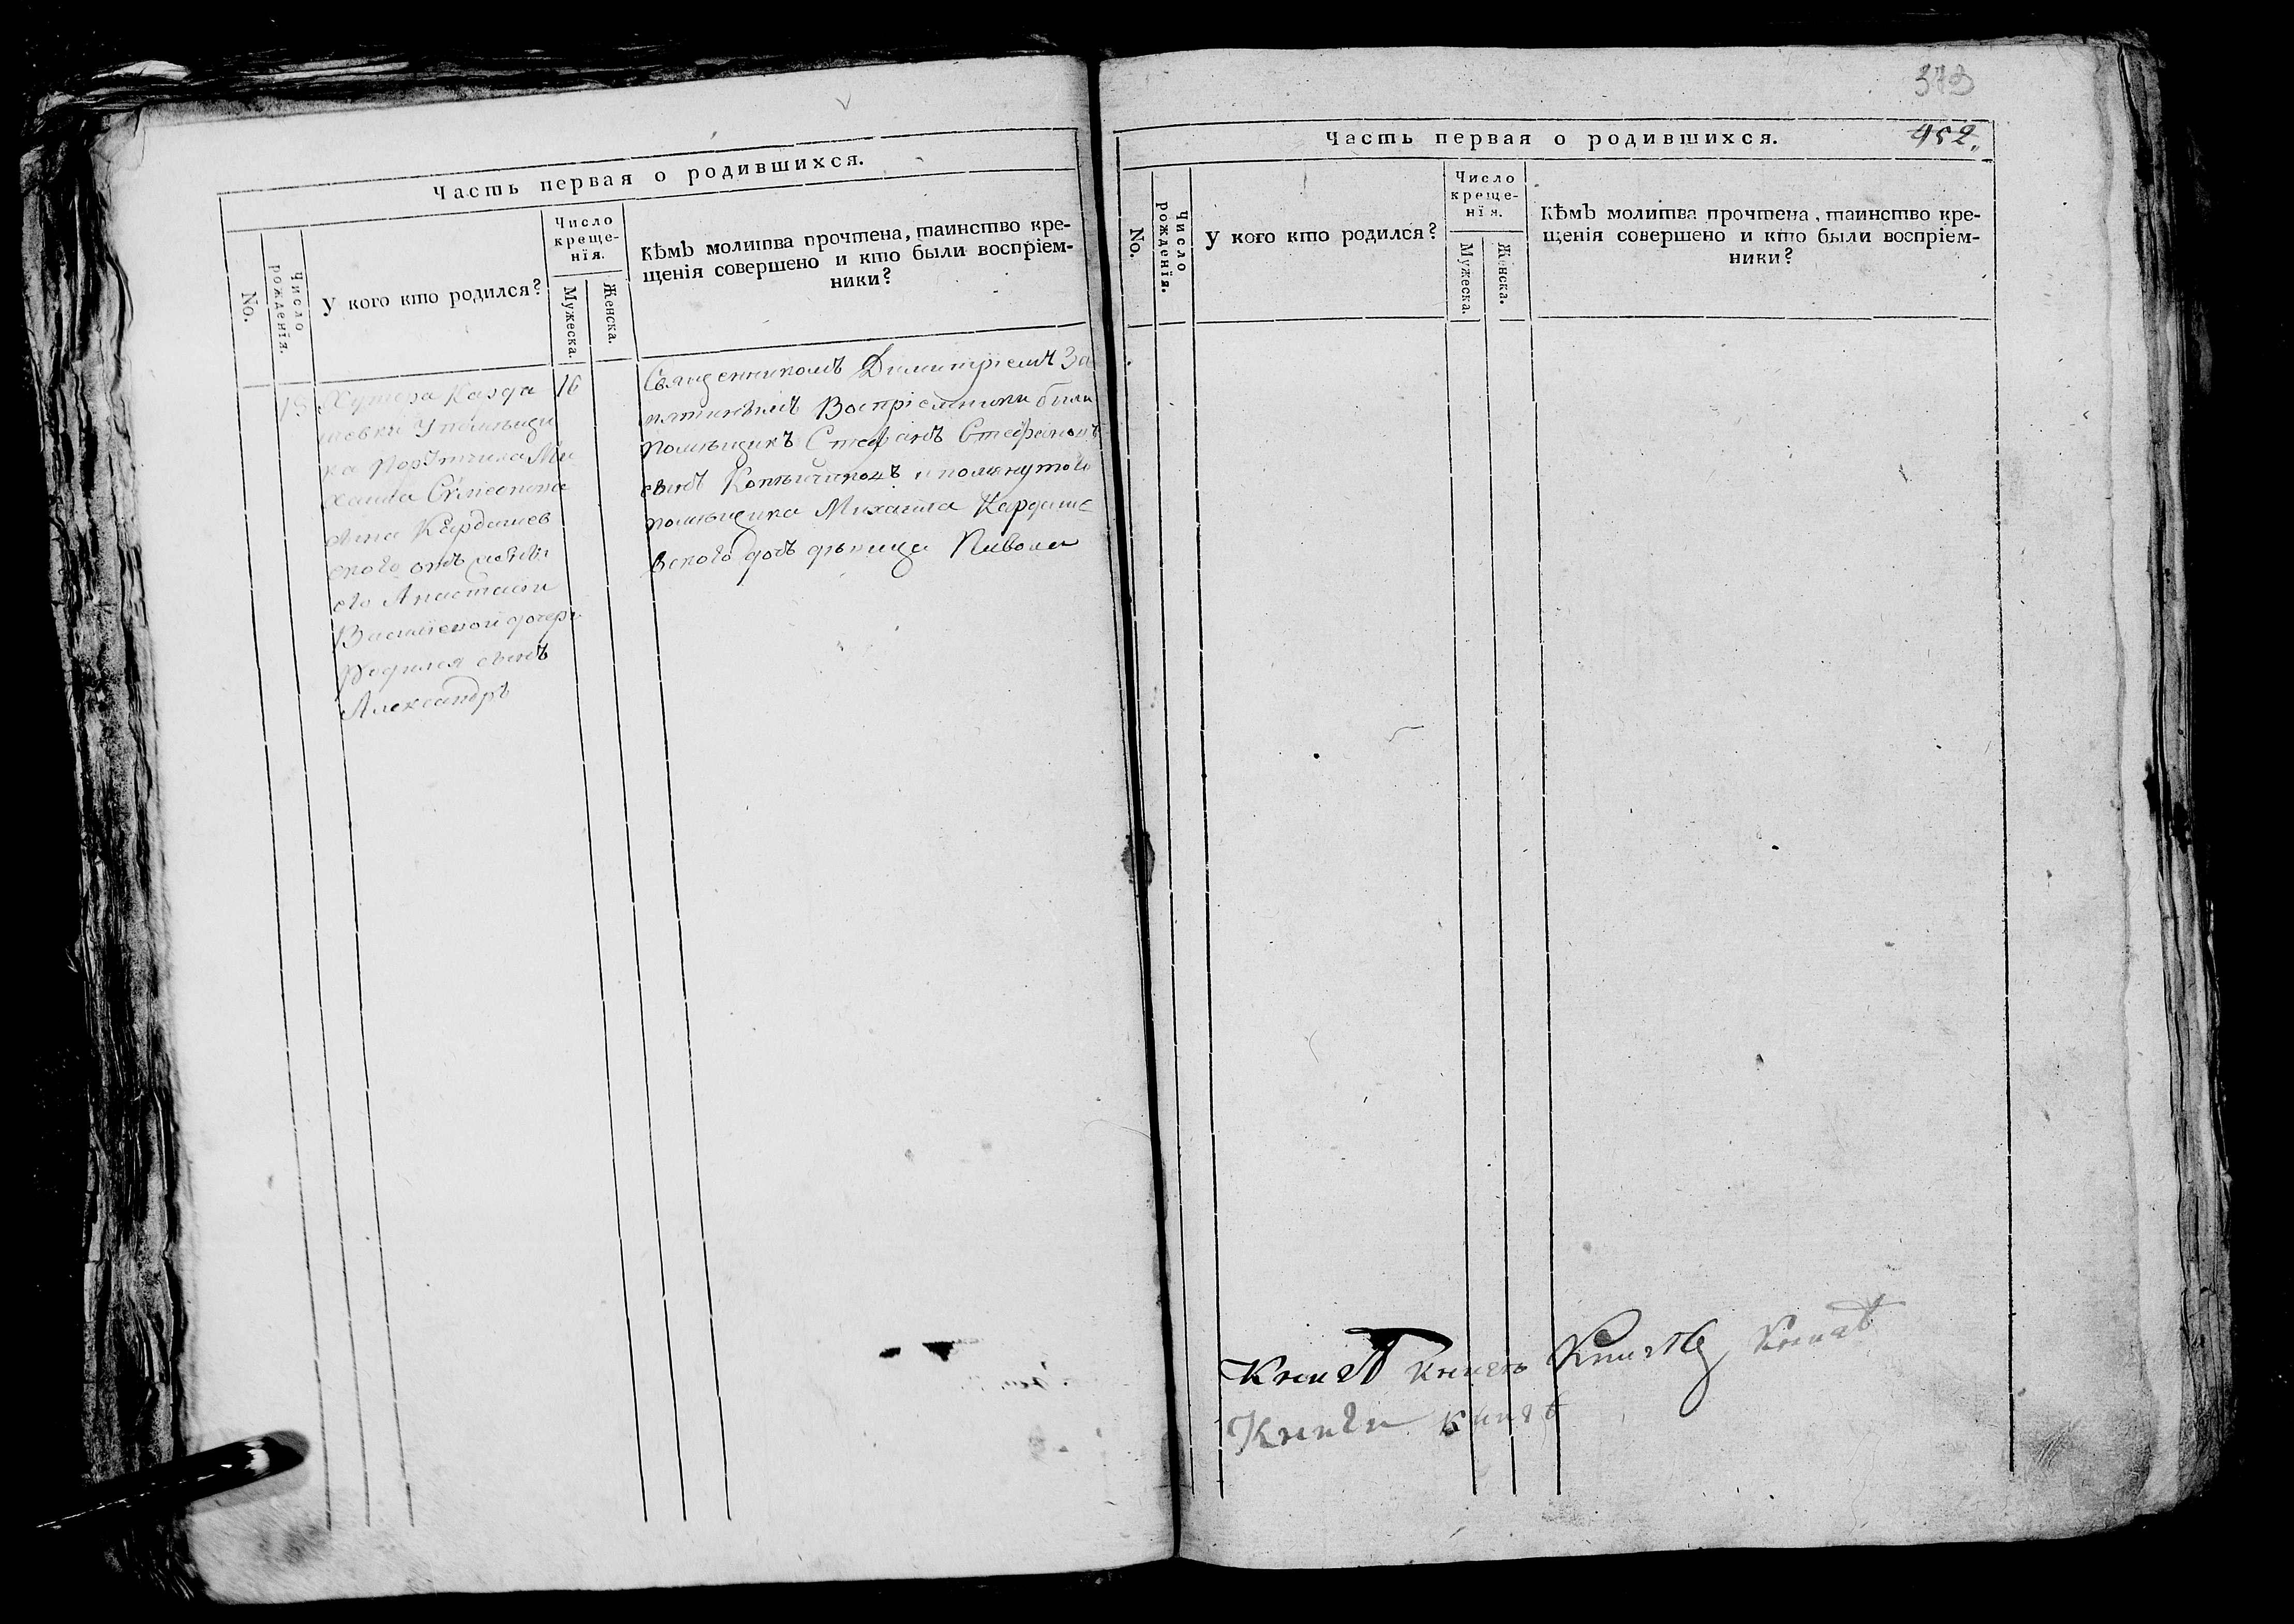 Часть первая о родившихся.
No.
Число рожденія.
У кого кто родился?
Число
креще-
нія.
Мужеска.
Женска.
Кѣмъ молитва прочтена, таинство кре-
щенія совершено и кто были воспріем-
ники?
15
Хутора Карда
шевки У помѣщи
ка Порутчика Ми
хаила
сына Кардашев
ского отъ жены
его Анастасіи
Василіевой дочери
Родился сынъ
Александръ
16
Священникомъ Димитріемъ За
Воспріемники были
помѣщикъ Стефанъ Стефановъ
сынъ и помянутого
помѣщика Михаила Кардаше
вского дочь дѣвица
373
Часть первая о родившихся.
452.
No.
Число рожденія.
У кого кто родился?
Число
креще-
нія.
Мужеска.
Женска.
Кѣмъ молитва прочтена, таинство кре-
щенія совершено и кто были воспріем-
ники?
Книгъ
Книги